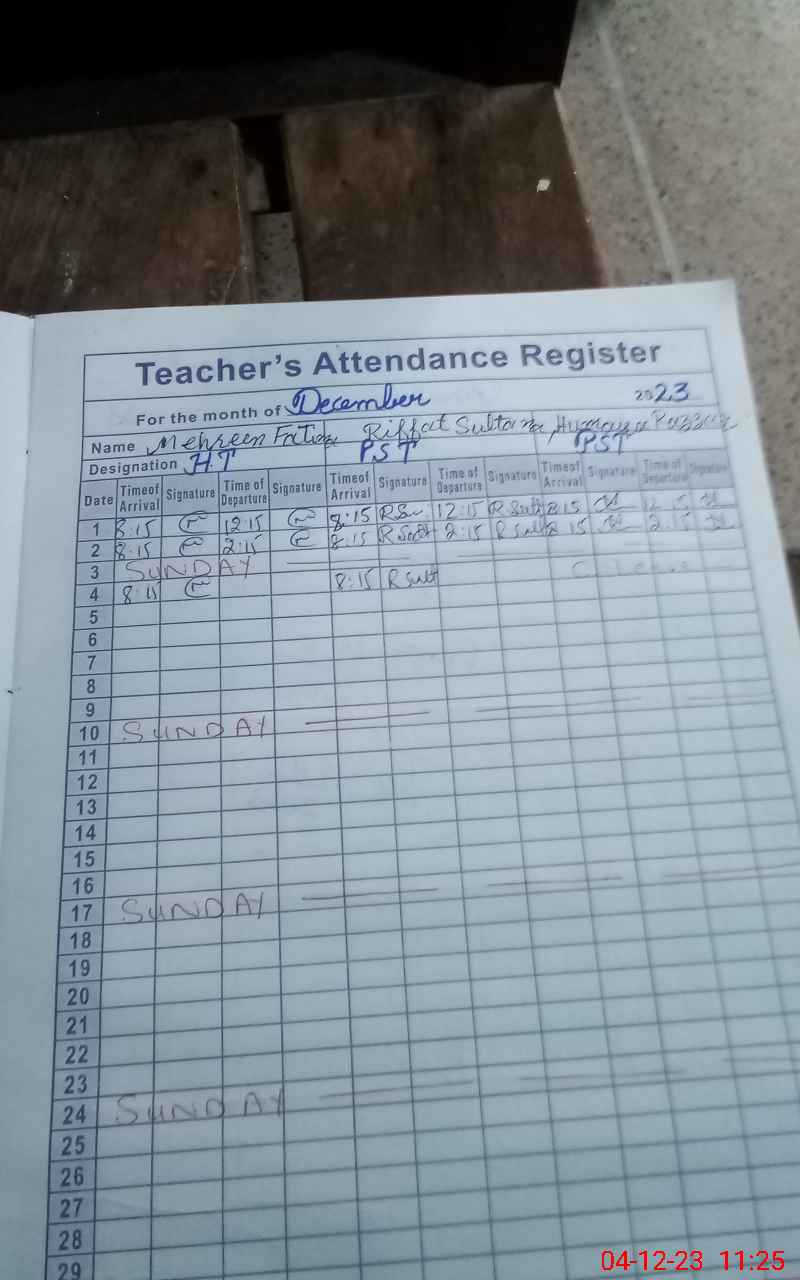 Teacher's Attendance Register
For the month of December 2023
Name Mehreen Fatima Riffat Sultana, Humaya
Designation H.T PST PST
Date Timeof Arrival Signature Time of Departure Signature Timeof Arrival Signature Time of Departure Signature Timeof Arrival Signature Time of Departure Signature
1 8:15 12:15 8:15 12:15 8:15 12:15
2 8:15 2:15 8:15 2:15 8:15 2:15
3 SUNDAY
4 8:15 8:15 R Sult
5
6
7
8
9
10 SUNDAY
11
12
13
14
15
16
17 SUNDAY
18
19
20
21
22
23
24 SUNDAY
25
26
27
28
29
04-12-23 11:25